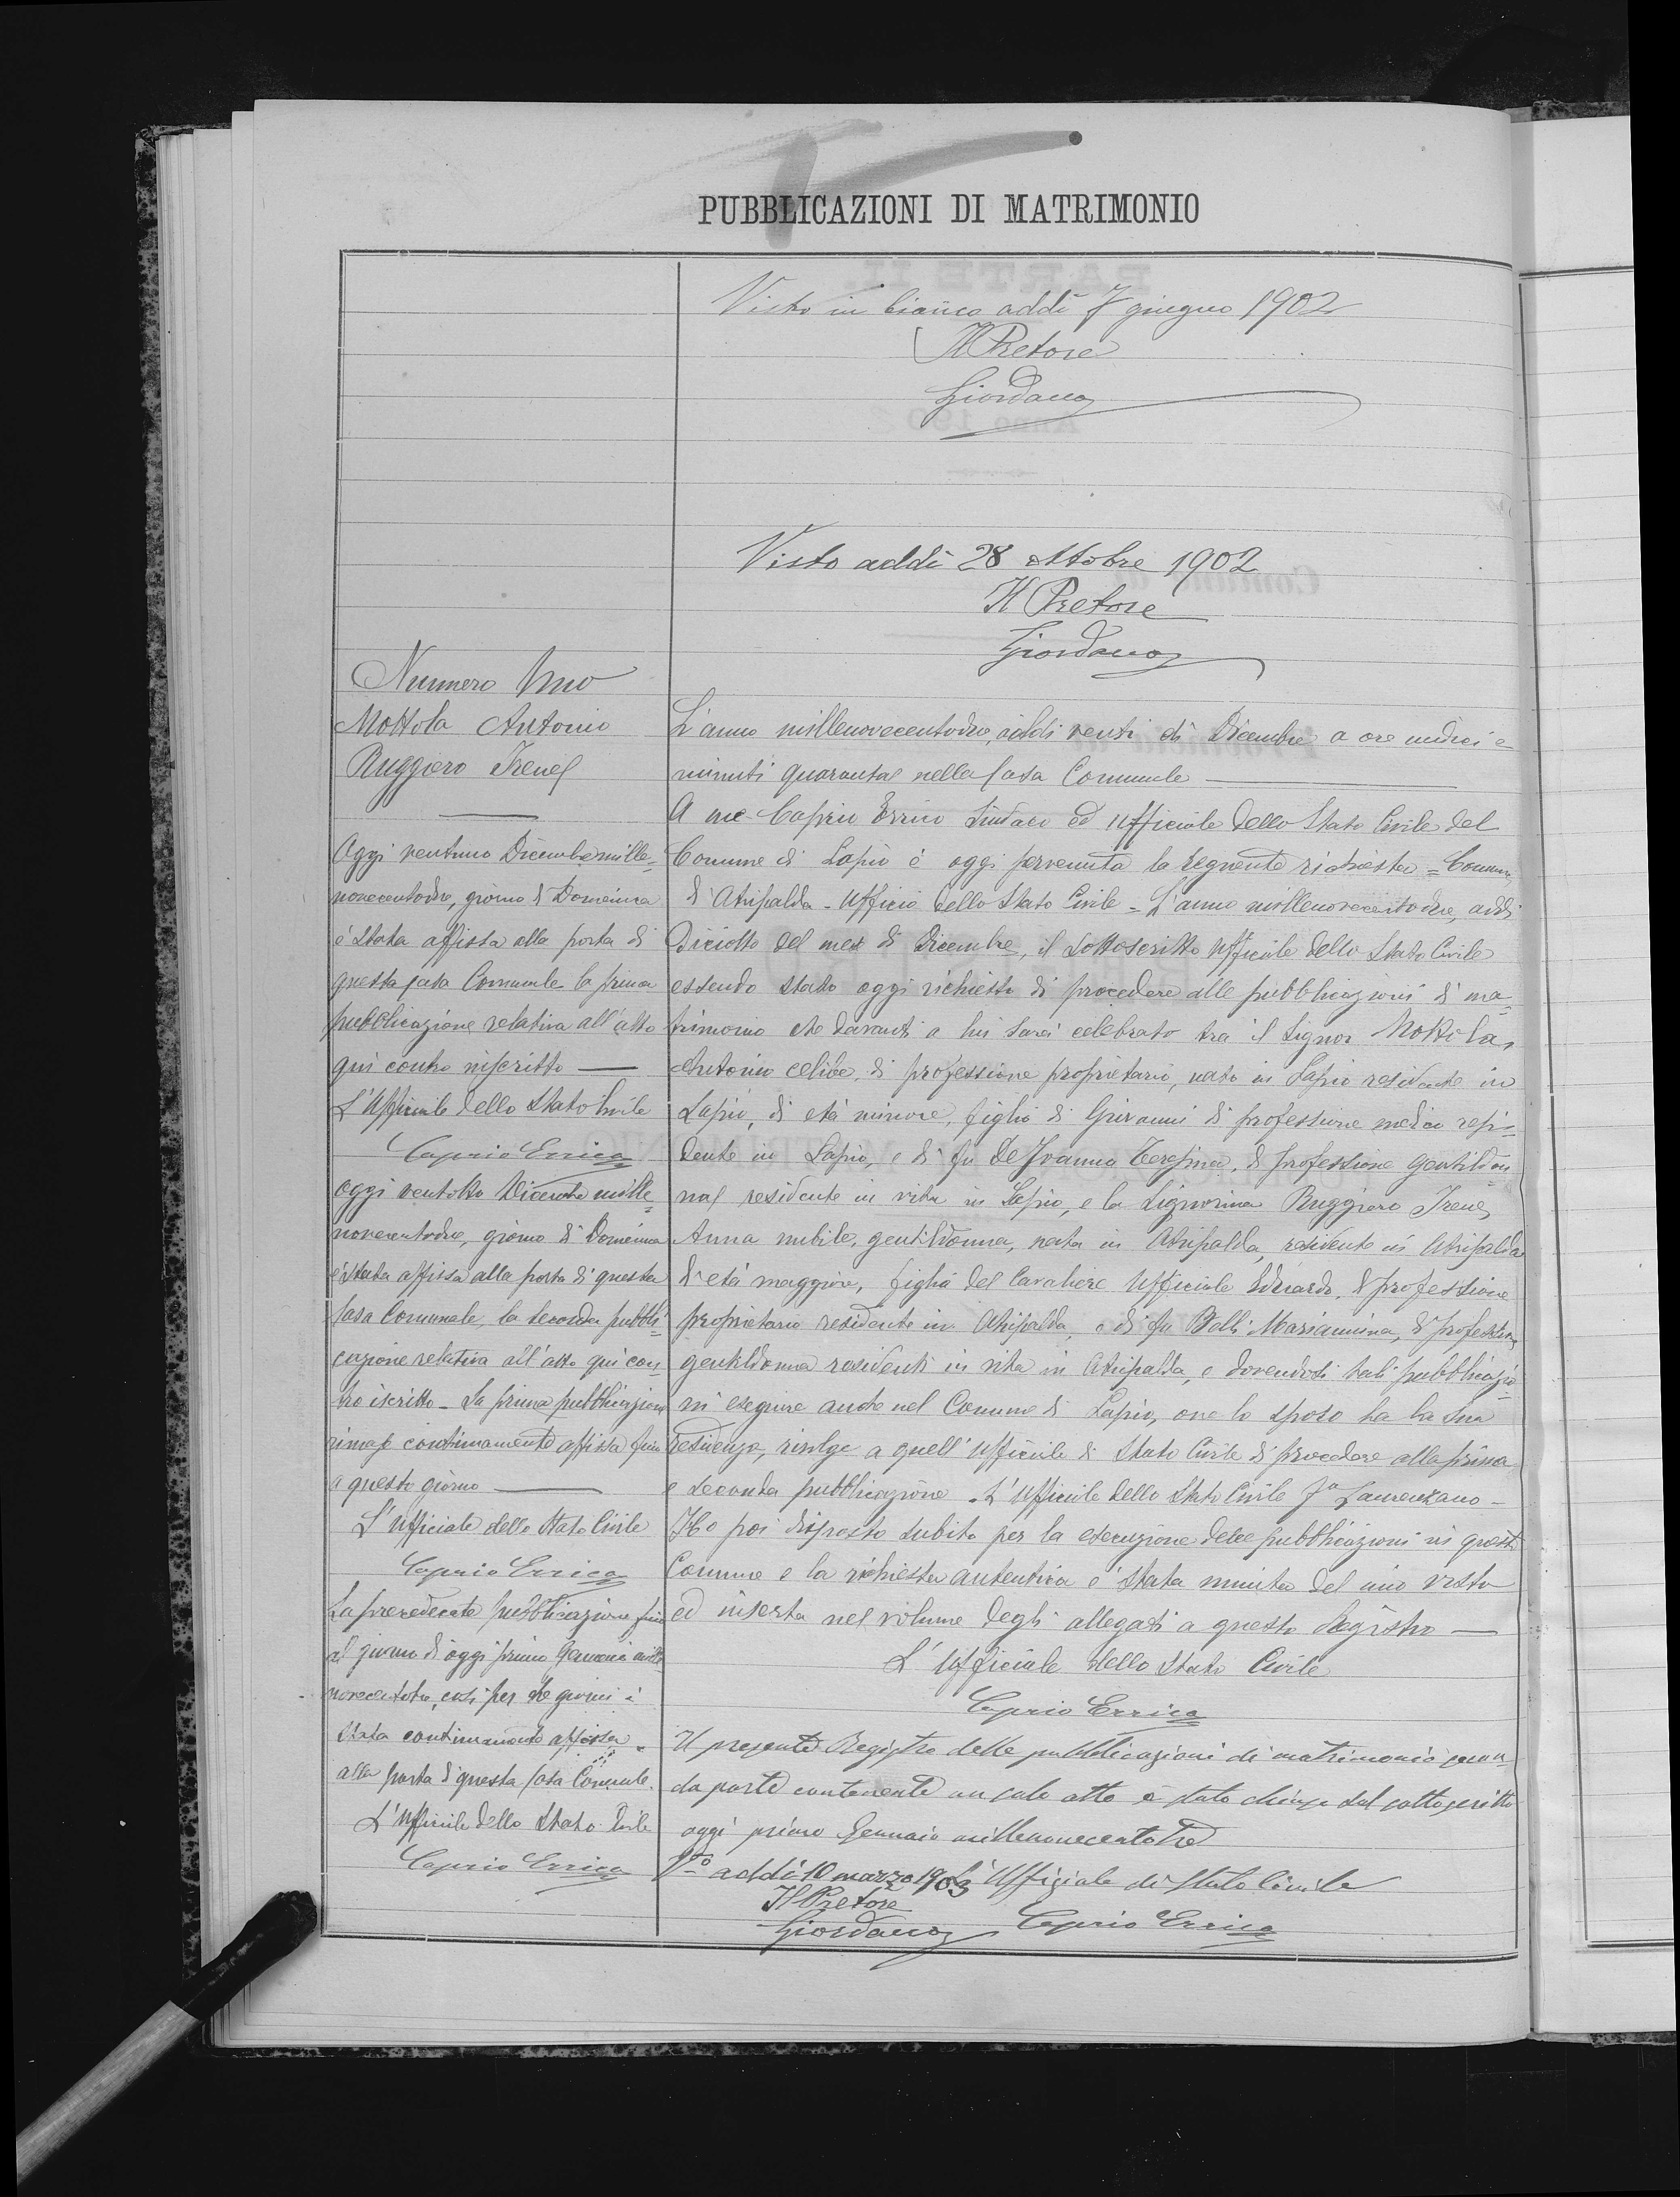 PUBBLICAZIONI DI MATRIMONIO
Visto in bianco addì 7 giugno 1902
Il Pretore
Giordano
Visto addì 28 ottobre 1902
Il Pretore
Giordano
Numero Uno
Mottola Antonio
Ruggiero Irene
Oggi ventuno Dicembre mille-
novecentodue, giorno di Domenica
è stata affissa alla porta di
questa Casa Comunale la prima
pubblicazione relativa all'atto
qui contro inscritto
L'Ufficiale dello Stato Civile
Caprio Errico
Oggi ventotto Dicembre mille-
novecentodue, giorno di Domenica
è stata affissa alla porta di questa
Casa Comunale, la seconda pubbli-
cazione relativa all'atto qui con-
tro iscritto - La prima pubblicazione
rimase continuamente affissa fino
a questo giorno
L'Ufficiale dello Stato Civile
Caprio Errico
La precedente pubblicazione fino
al giorno di oggi primo Gennaio mille
novecentotre, così per tre giorni è
stata continuamente affissa
alla porta di questa Casa Comunale.
L'Ufficiale dello Stato Civile
Caprio Errico
L'anno millenovecentodue, addì venti di Dicembre a ore undici e
minuti quaranta nella Casa Comunale
A me Caprio Errico Sindaco ed Ufficiale dello Stato Civile del
Comune di Lapio è oggi pervenuta la seguente richiesta = Comune
di Atripalda - Ufficio dello Stato Civile - L'anno millenovecentodue, addì
Diciotto del mese di Dicembre, il sottoscritto Ufficiale dello Stato Civile
essendo stato oggi richiesto di procedere alle pubblicazioni di ma-
trimonio che davanti a lui sarà celebrato tra il Signor Mottola,
Antonio celibe, di professione proprietario, nato in Lapio residente in
Lapio, di età minore, figlio di Giovanni di professione medico resi-
dente in Lapio, e di fu De Joanna Teresina, di professione gentildon-
na residente in vita in Lapio, e la Signorina Ruggiero Irene,
Anna nubile, gentildonna, nata in Atripalda, residente in Atripalda
di età maggiore, figlia del Cavaliere Ufficiale Eduardo, di professione
proprietario residente in Atripalda, e di fu Belli Mariannina, di professione
gentildonna residente in vita in Atripalda, e dovendosi tali pubblicazio-
ni eseguire anche nel Comune di Lapio, ove lo sposo ha la sua
residenza, rivolge a quell'Ufficiale di Stato Civile di procedere alla prima
e seconda pubblicazione. L'Ufficiale dello Stato Civile Fto Laurenzano -
Ho poi disposto subito per la esecuzione delle pubblicazioni in questo
Comune e la richiesta autentica è stata munita del mio visto
ed inserta nel volume degli allegati a questo Registro
L'Ufficiale dello Stato Civile
Caprio Errico
Il presente Registro delle pubblicazioni di matrimonio secon-
da parte contenente un solo atto è stato chiuso dal sottoscritto
oggi primo Gennaio millenovecentotre
Vto addì 10 marzo 1903 L'Uffiziale di Stato Civile
Il Pretore
Giordano Caprio Errico